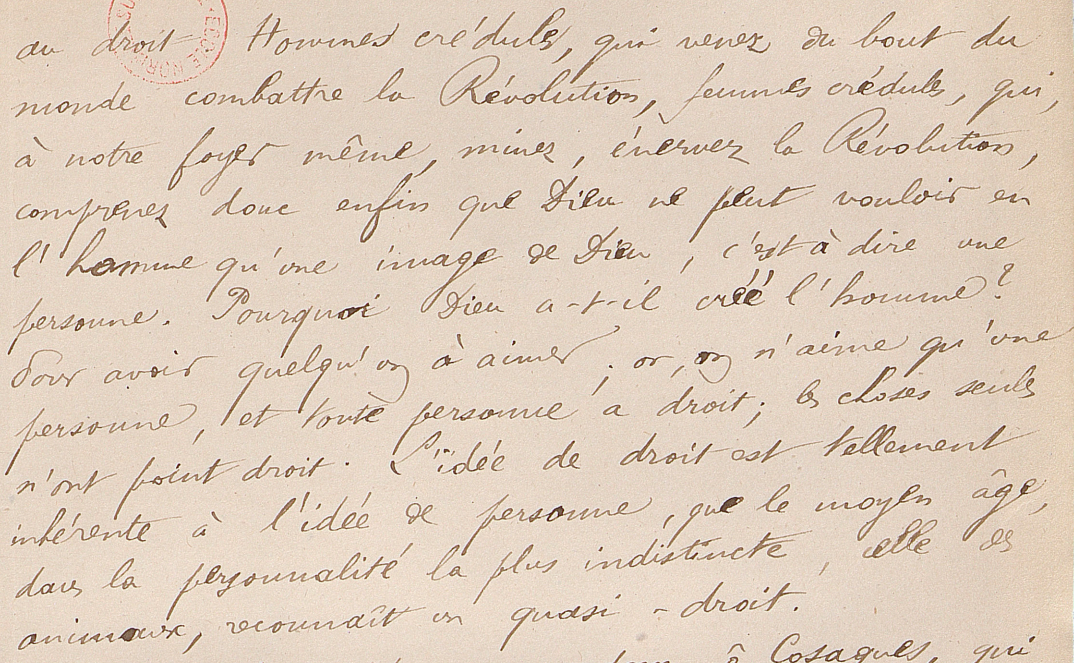 au droit Hommes crédules, qui venez du bout du
monde combattre la Révolution, femmes crédules, qui,
à notre foyer même, minez, énervez la Révolution,
comprenez donc enfin que Dieu ne peut vouloir en
l'homme qu'une image de Dieu, c'est à dire une
personne. Pourquoi Dieu a-t-il créé l'homme?
Pour avoir quelqu'un à aimer; or, on n'aime qu'une
personne, et toute personne a droit; les choses seules
n'ont point droit. L'idée de droit est tellement
inhérente à l'idée de personne, que le moyen âge,
dans la personnalité la plus indistincte, celle des
animaux, reconnaît un quasi-droit.
ô Cosaques, qui